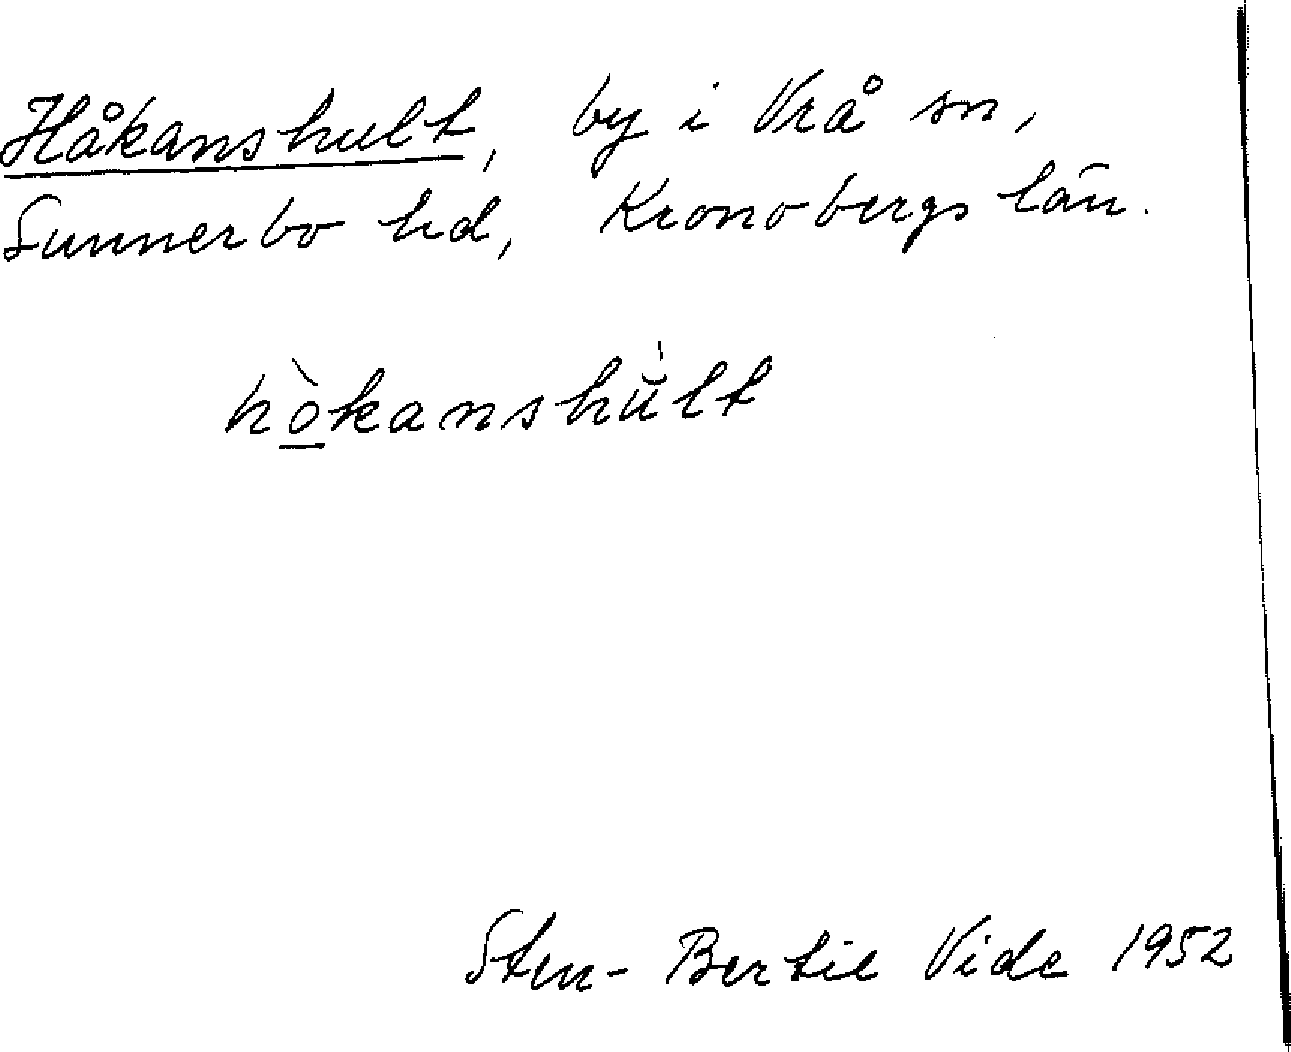 Håkanshult, by i Vrå sn,
Sunnerbo hd, Kronobergs län.
hò̲kanshŭ̀lt
Sten-Bertil Vide 1952